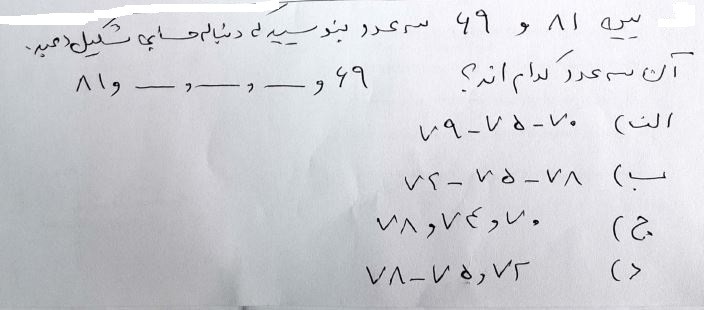 بین ۸۱ و ۶۹ سه عدد بنویسید که دنباله حسابی تشکیل دهد.
آن سه عدد کدام اند؟ ۶۹ و — و — و — و ۸۱
الف) ۷۰-۷۵-۷۹
ب) ۷۸-۷۵-۷۲
ج) ۷۰ و ۷۴ و ۷۸
د) ۷۲ و ۷۵-۷۸